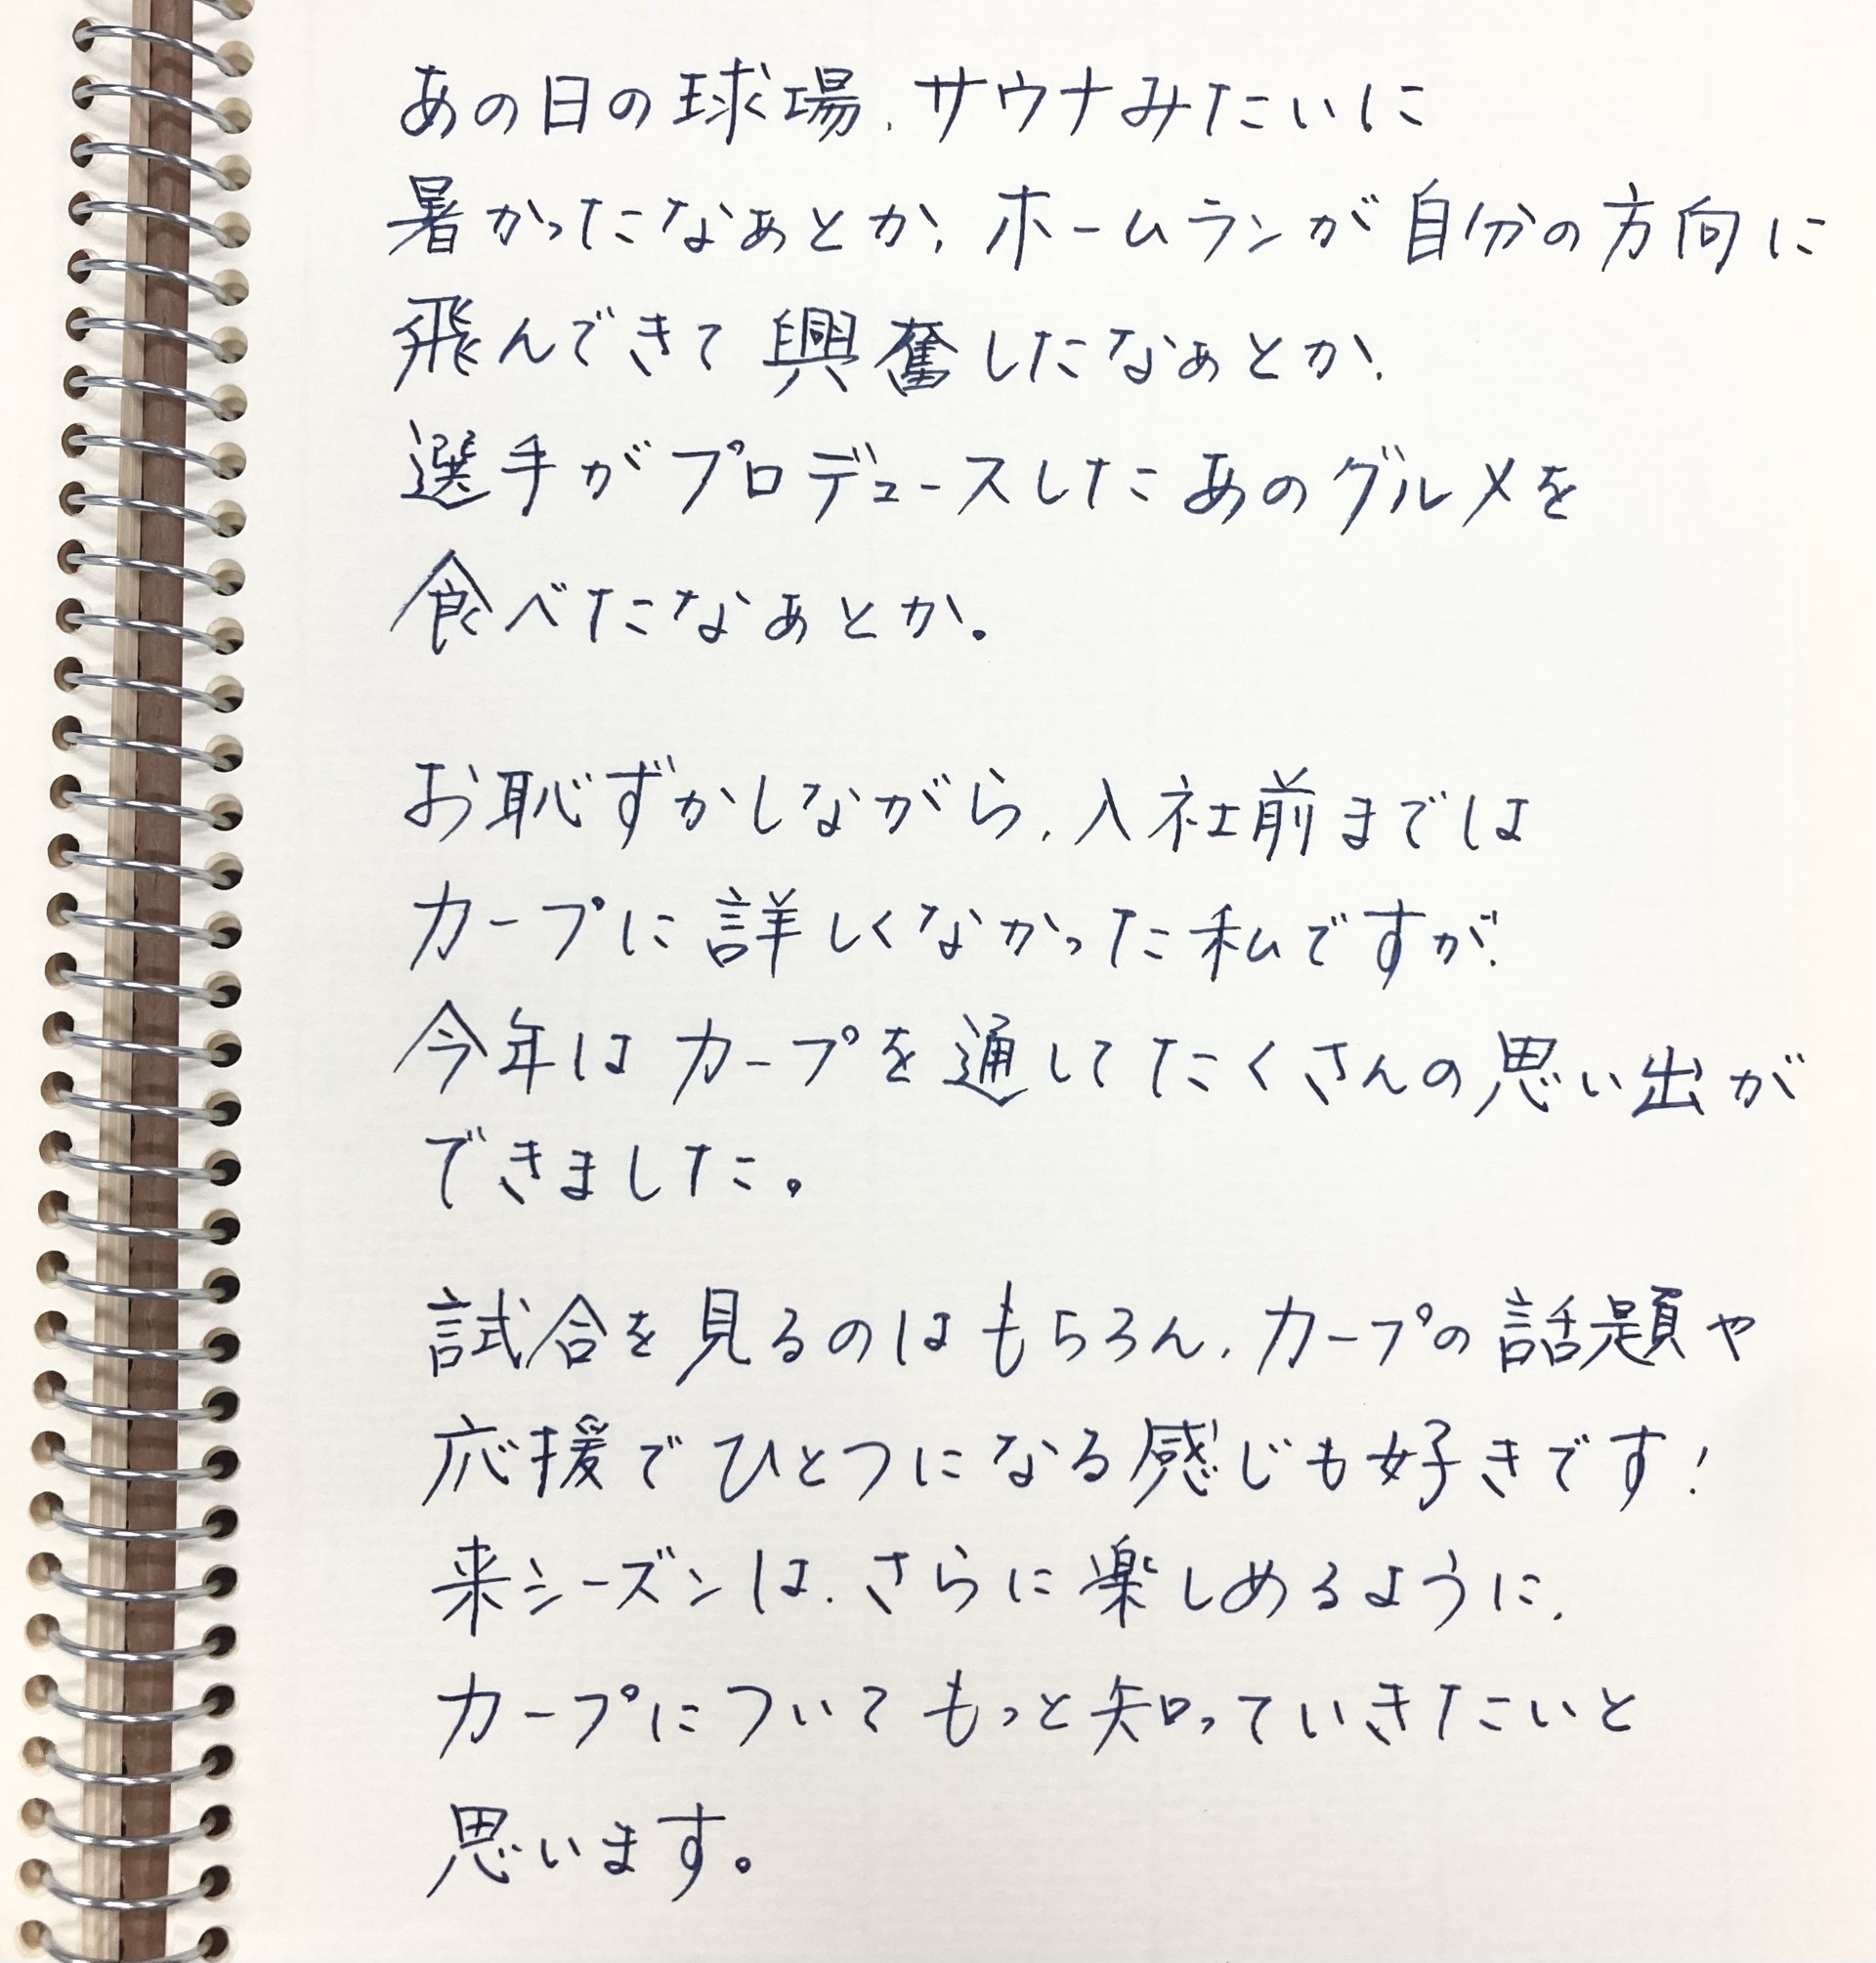 あの日の球場、サウナみたいに
暑かったなぁとか、ホームランが自分の方向に
飛んできて興奮したなぁとか、
選手がプロデュースしたあのグルメを
食べたなぁとか。
お恥ずかしながら、入社前までは
カープに詳しくなかった私ですが、
今年はカープを通してたくさんの思い出が
できました。
試合を見るのはもちろん、カープの話題や
応援でひとつになる感じも好きです!
来シーズンは、さらに楽しめるように、
カープについてもっと知っていきたいと
思います。